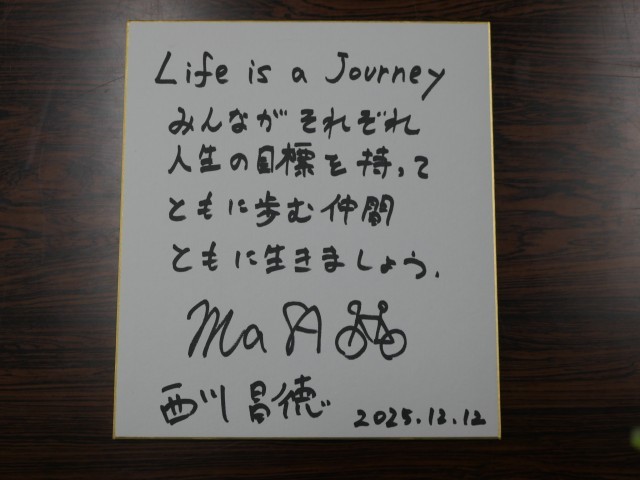 Life is a Journey
みんながそれぞれ
人生の目標を持って
ともに歩む仲間
ともに生きましょう.
MaSA
西川昌徳
2025.12.12